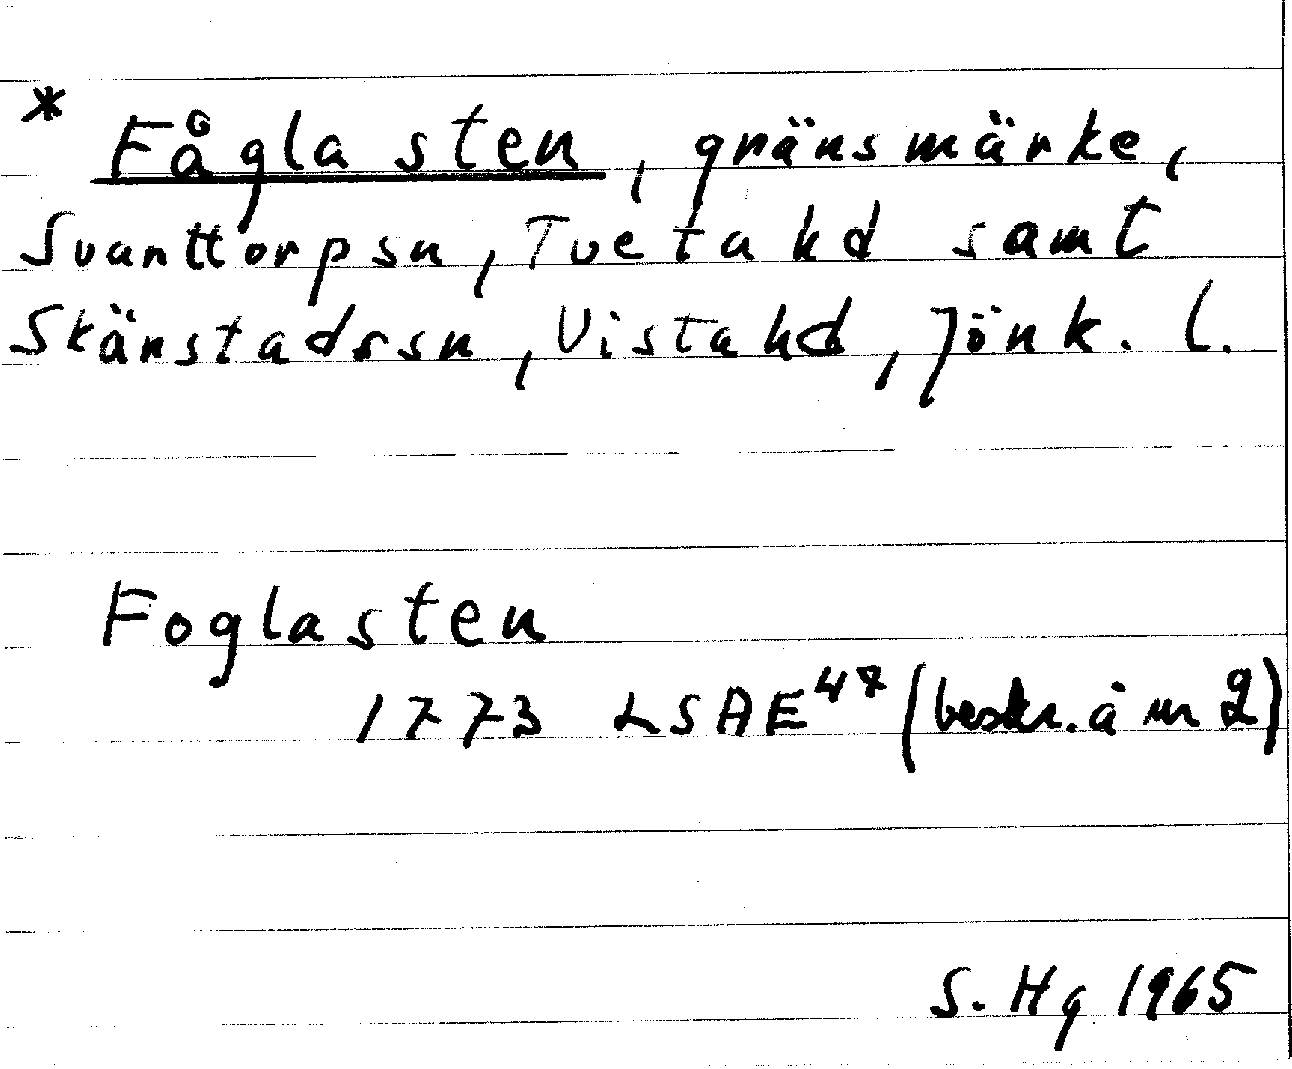 * Fåglasten, gränsmärke,
Svanttorpsn, Tveta hd samt
Skänstadssn, Vista hd, Jönk. l.
Foglasten
1773 LSA E 47 (beskr. å nr 2)
S. Hg 1965